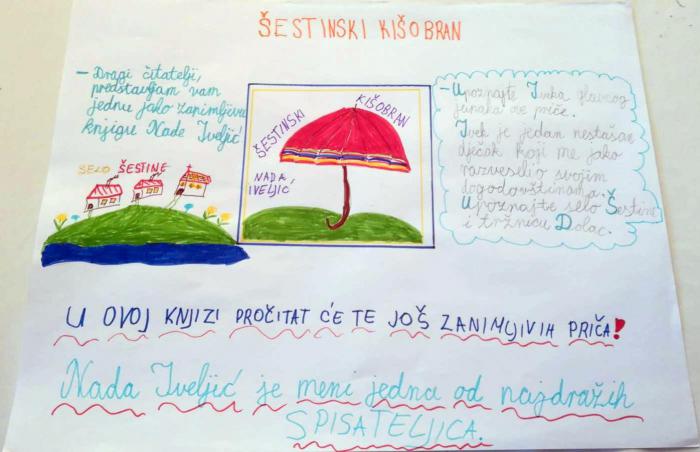 ŠESTINSKI KIŠOBRAN
- Dragi čitatelji,
predstavljam vam
jednu jako zanimljivu
knjigu Nade Iveljić
SELO ŠESTINE
ŠESTINSKI KIŠOBRAN
NADA
IVELJIĆ
- Upoznajte Ivka glavnog
junaka ove priče.
Ivek je jedan nestašan
dječak koji me jako
razveselio svojim
dogodovštinama.
Upoznajte selo Šestine
i tržnicu Dolac.
U OVOJ KNJIZI PROČITAT ĆE TE JOŠ ZANIMLJIVIH PRIČA!
Nada Iveljić je meni jedna od najdražih
SPISATELJICA.